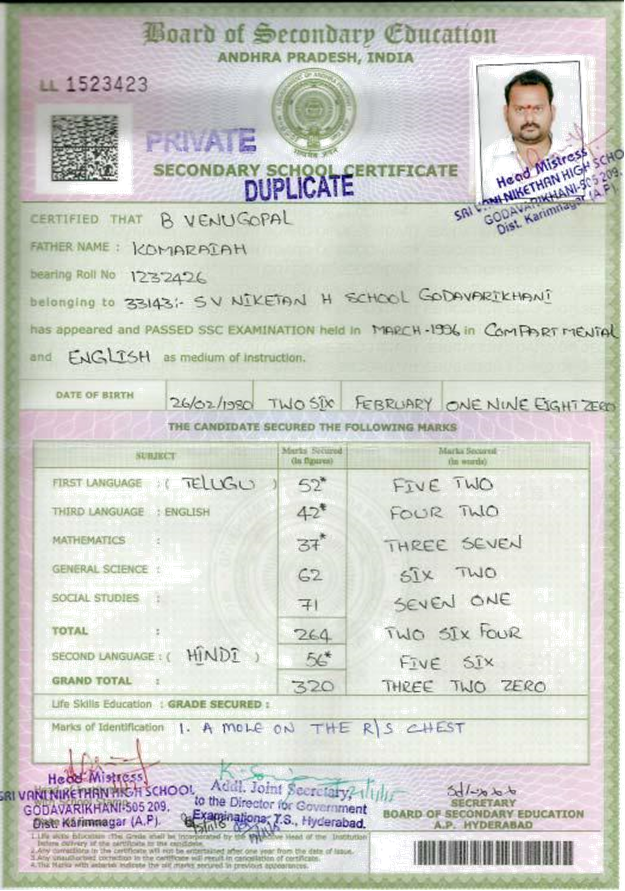 Board of Secondary Education
ANDHRA PRADESH, INDIA
LL 1523423
PRIVATE
SECONDARY SCHOOL CERTIFICATE
DUPLICATE
Head Mistress
SRI VANI NIKETHAN HIGH SCHO
GODAVARIKHANI-505 209.
Dist. Karimnagar (A.P.)
CERTIFIED THAT B VENUGOPAL
FATHER NAME : KOMARAIAH
bearing Roll No 1232426
belonging to 33143:- S V NIKETAN H SCHOOL GODAVARIKHANI
has appeared and PASSED SSC EXAMINATION held in MARCH-1996 in COMPARTMENTAL
and ENGLISH as medium of instruction.
DATE OF BIRTH 26/02/1980 TWO SIX FEBRUARY ONE NINE EIGHT ZERO
THE CANDIDATE SECURED THE FOLLOWING MARKS
SUBJECT Marks Secured (in figures) Marks Secured (in words)
FIRST LANGUAGE : ( TELUGU ) 52* FIVE TWO
THIRD LANGUAGE : ENGLISH 42* FOUR TWO
MATHEMATICS : 37* THREE SEVEN
GENERAL SCIENCE : 62 SIX TWO
SOCIAL STUDIES : 71 SEVEN ONE
TOTAL : 264 TWO SIX FOUR
SECOND LANGUAGE : ( HINDI ) 56* FIVE SIX
GRAND TOTAL : 320 THREE TWO ZERO
Life Skills Education : GRADE SECURED :
Marks of Identification 1. A MOLE ON THE R/S CHEST
Head Mistress
SRI VANI NIKETHAN HIGH SCHOOL
GODAVARIKHANI-505 209.
Dist. Karimnagar (A.P.)
Addl. Joint Secretary,
to the Director for Government
Examinations, T.S., Hyderabad.
SECRETARY
BOARD OF SECONDARY EDUCATION
A.P. HYDERABAD
1.Life skills Education :The Grade shall be incorporated by the Head of the Institution
before delivery of the certificate to the candidate.
2.Any corrections in the certificate will not be entertained after one year from the date of issue.
3.Any unauthorised correction in the certificate will result in cancellation of certificate.
4.The Marks with asterisk indicate the marks secured in previous appearances.